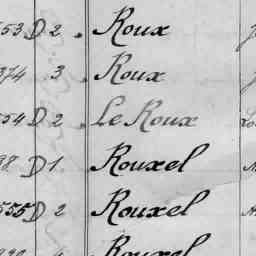 53 D 2 Roux
374 3 Roux
54 D 2 Le Roux
98 D 1 Rouxel
555 D 2 Rouxel
Rouxel